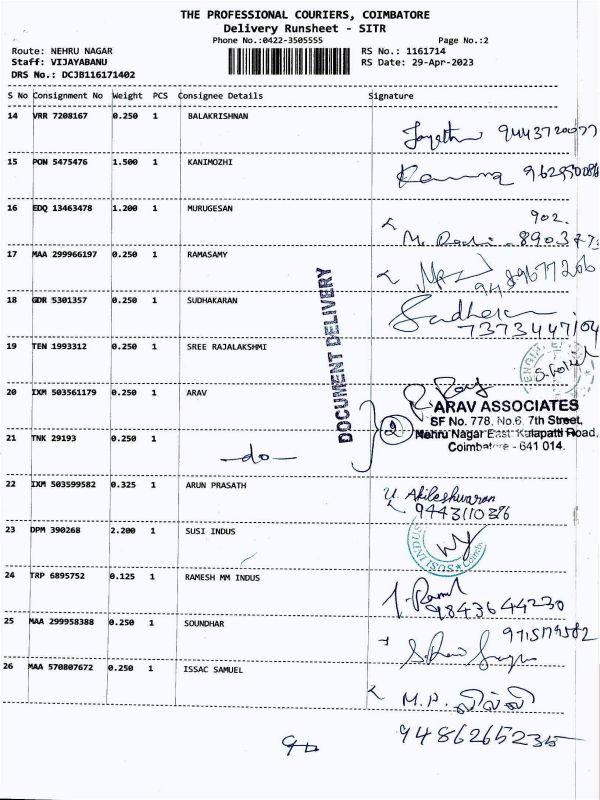 THE PROFESSIONAL COURIERS, COIMBATORE
Delivery Runsheet - SITR
Phone No.:0422-3505555 Page No.:2
Route: NEHRU NAGAR RS No.: 1161714
Staff: VIJAYABANU RS Date: 29-Apr-2023
DRS No.: DCJB116171402
S No Consignment No Weight PCS Consignee Details Signature
14 VRR 7208167 0.250 1 BALAKRISHNAN
15 PON 5475476 1.500 1 KANIMOZHI
16 EDQ 13463478 1.200 1 MURUGESAN
902.
17 MAA 299966197 0.250 1 RAMASAMY
9489677266
18 GDR 5301357 0.250 1 SUDHAKARAN
7373447104
19 TEN 1993312 0.250 1 SREE RAJALAKSHMI
DOCUMENT DELIVERY
20 IXM 503561179 0.250 1 ARAV
ARAV ASSOCIATES
SF No. 778, No.6, 7th Street,
Nehru Nagar East, Kalapatti Road,
Coimbatore - 641 014.
2
21 TNK 29193 0.250 1
-do-
22 IXM 503599582 0.325 1 ARUN PRASATH
U. Akileshwaran
9443110326
23 DPM 390268 2.200 1 SUSI INDUS
SUSI INDUS
24 TRP 6895752 0.125 1 RAMESH MM INDUS
9843644230
25 MAA 299958388 0.250 1 SOUNDHAR
26 MAA 570807672 0.250 1 ISSAC SAMUEL
M.P.
9486265235